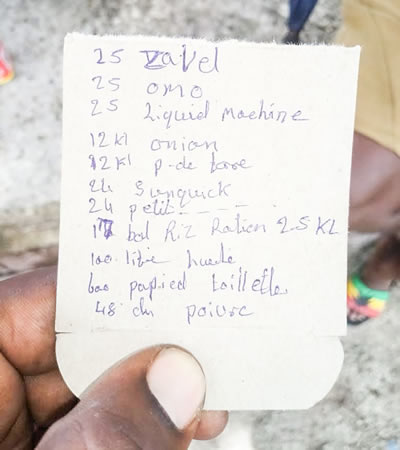 25 Javel
25 omo
25 Liquid Machine
12 kl onian
12 kl p-de tare
24 Sunquick
24 petit - - - -
17 bal Riz Ration 25 KL
100 litre huile
600 papied toillette
48 du poivre